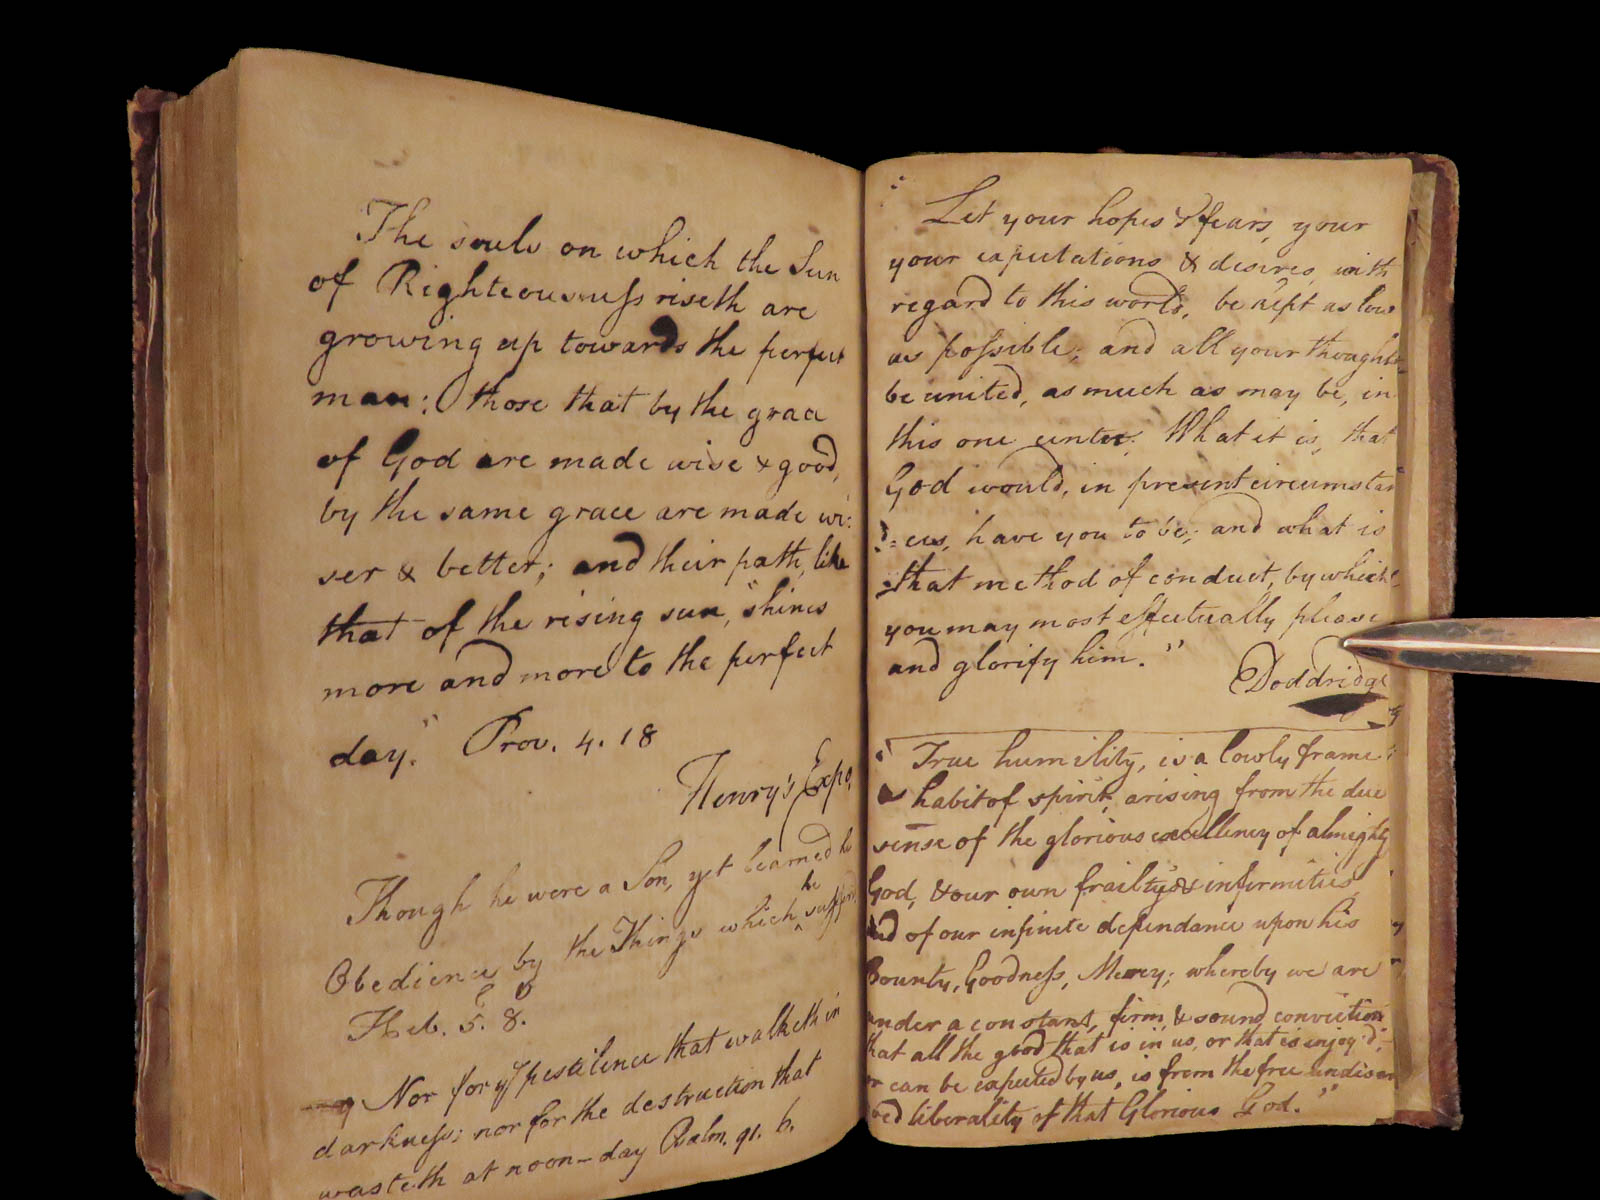 The souls on which the Sun
of Righteousness riseth are
growing up towards the perfect
man: those that by the grace
of God are made wise & good,
by the same grace are made wi:
ser & better; and their path, like
that of the rising sun, "shines
more and more to the perfect
day." Prov. 4. 18
Henry's Expo.
Though he were a Son, yet learned he
Obedience by the Things which he suffered
Heb. 5. 8.
Nor for ye pestilence that walketh in
darkness; nor for the destruction that
wasteth at noon-day Psalm. 91. 6.
Let your hopes & fears, your
your expectations & desires, with
regard to this world, be kept as low
as possible; and all your thoughts
be united, as much as may be, in
this one center. What it is, that
God would, in present circumstan
=ces, have you to be; and what is
that method of conduct, by which
you may most effectually please
and glorify him."
Doddridge
"True humility, is a lowly frame
habit of spirit, arising from the due
sense of the glorious excellency of almighty
God, & our own frailtys & infirmities,
and of our infinite dependance upon his
Bounty, Goodness, Mercy; whereby we are
under a constant, firm, & sound conviction
that all the good that is in us, or that is enjoy'd,
or can be expected by us, is from the free undeser
ved liberality of that Glorious God."